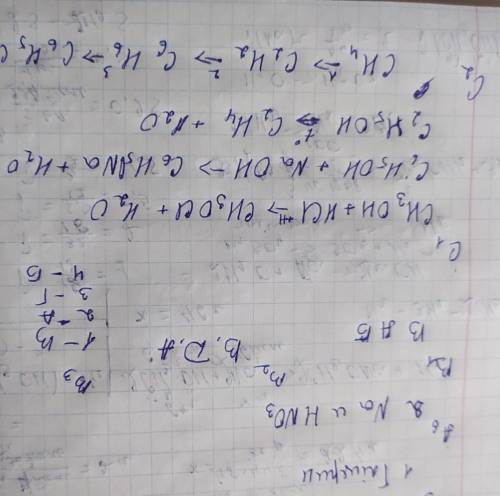 1 Гліцерин
A6
2. Na и HNO3
B1
В А Б
B2
В, Д, А
B3
1 – В
2 – А
3 – Г
4 – Б
C1
CH3OH + HCl → CH3OCl + H2O
C6H5OH + NaOH → C6H5Na + H2O
C2H5OH → C2H4 + H2O
C2
CH4 →1 C2H2 →2 C6H6 →3 C6H5C